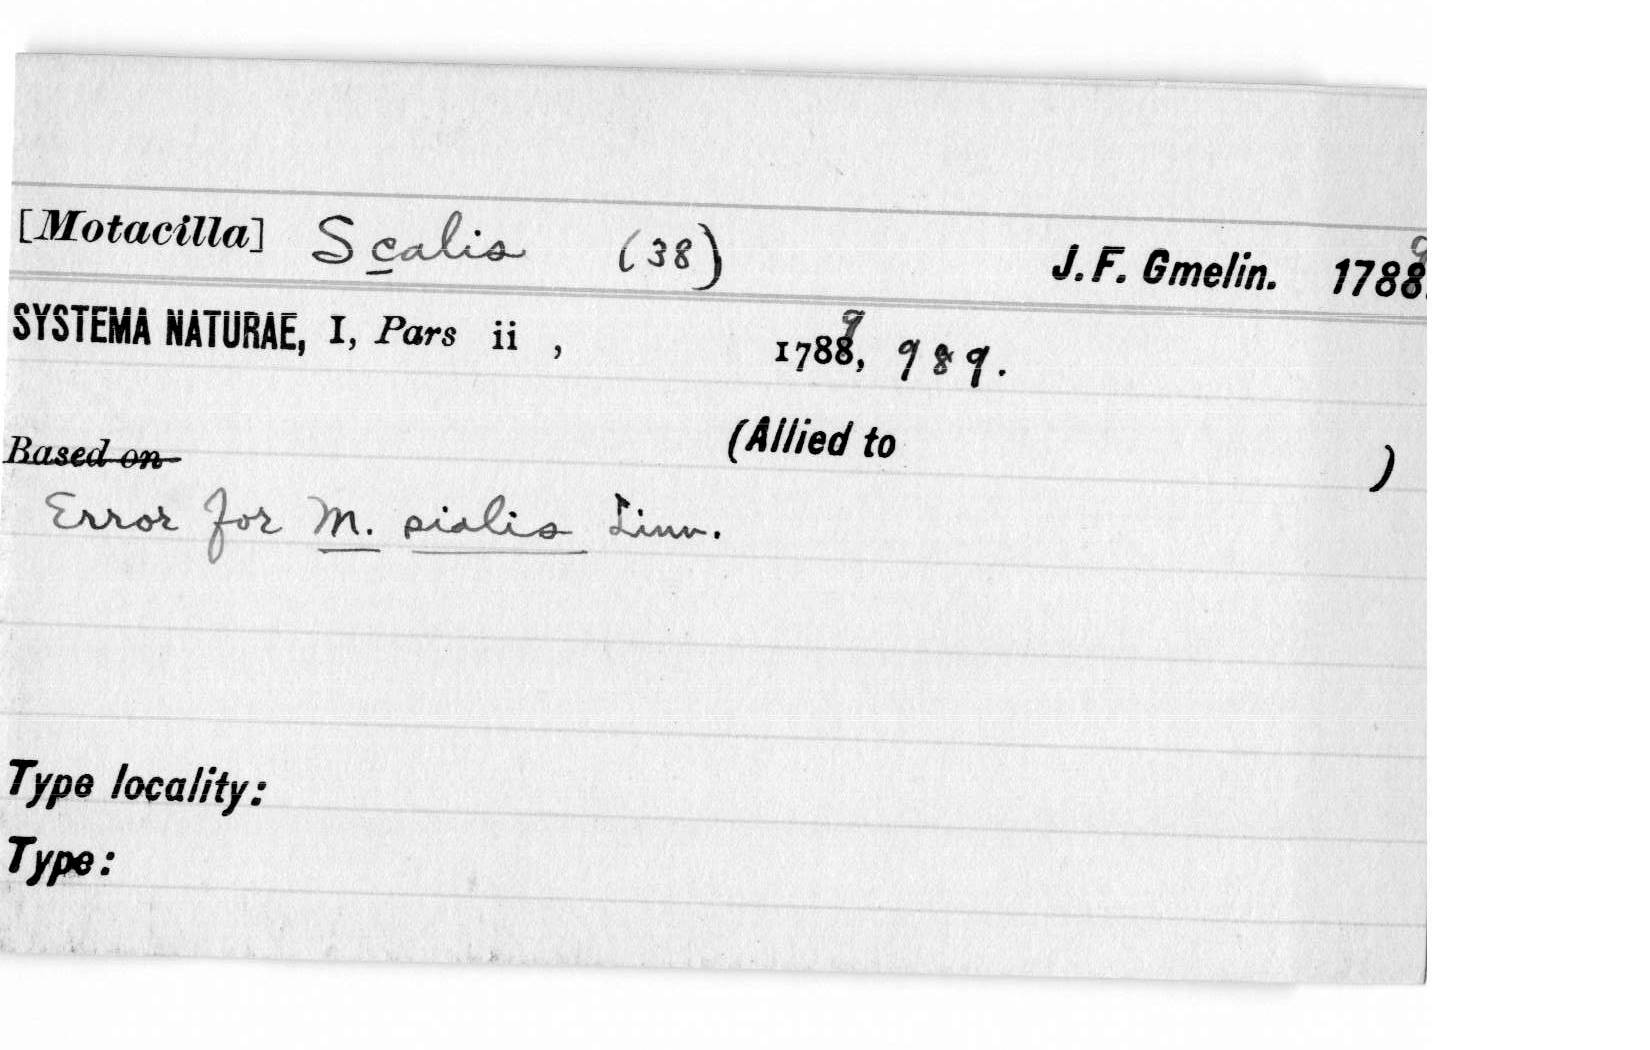 [Motacilla] Scalis (38) J. F. Gmelin. 1788 9
SYSTEMA NATURAE, I, Pars ii , 1788 9, 989.
Based on (Allied to )
Error for M. sialis Linn.
Type locality:
Type: